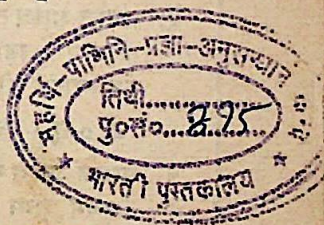 महर्षि-पाणिनि-प्रज्ञा-अनुसन्धान
तिथी..............
पु०सं०.... 295
* भारती पुस्तकालय *